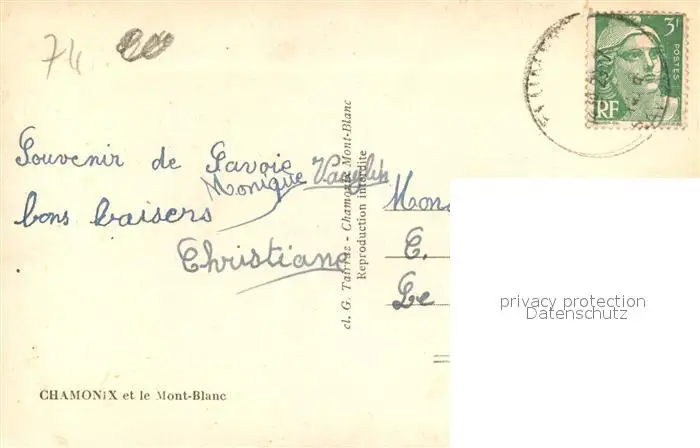 74
3F
POSTES
RF
Souvenir de Savoie
Monique Vauglin
bons baisers
Christiane
cl. G. Tairraz - Chamonix Mont-Blanc
Reproduction interdite
Mons
C.
Le
privacy protection
Datenschutz
CHAMONIX et le Mont-Blanc